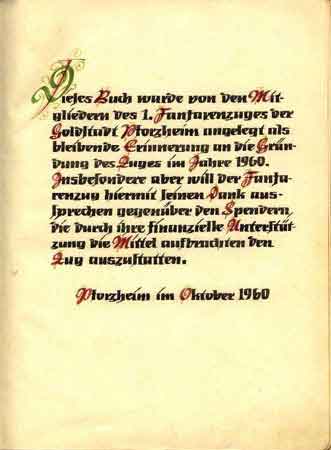 Dieses Buch wurde von den Mit-
gliedern des 1. Fanfarenzuges der
Goldstadt Pforzheim angelegt als
bleibende Erinnerung an die Grün-
dung des Zuges im Jahre 1960.
Insbesondere aber will der Fanfa-
renzug hiermit seinen Dank aus-
sprechen gegenüber den Spendern,
die durch ihre finanzielle Unterstüt-
zung die Mittel aufbrachten den
Zug auszustatten.
Pforzheim im Oktober 1960